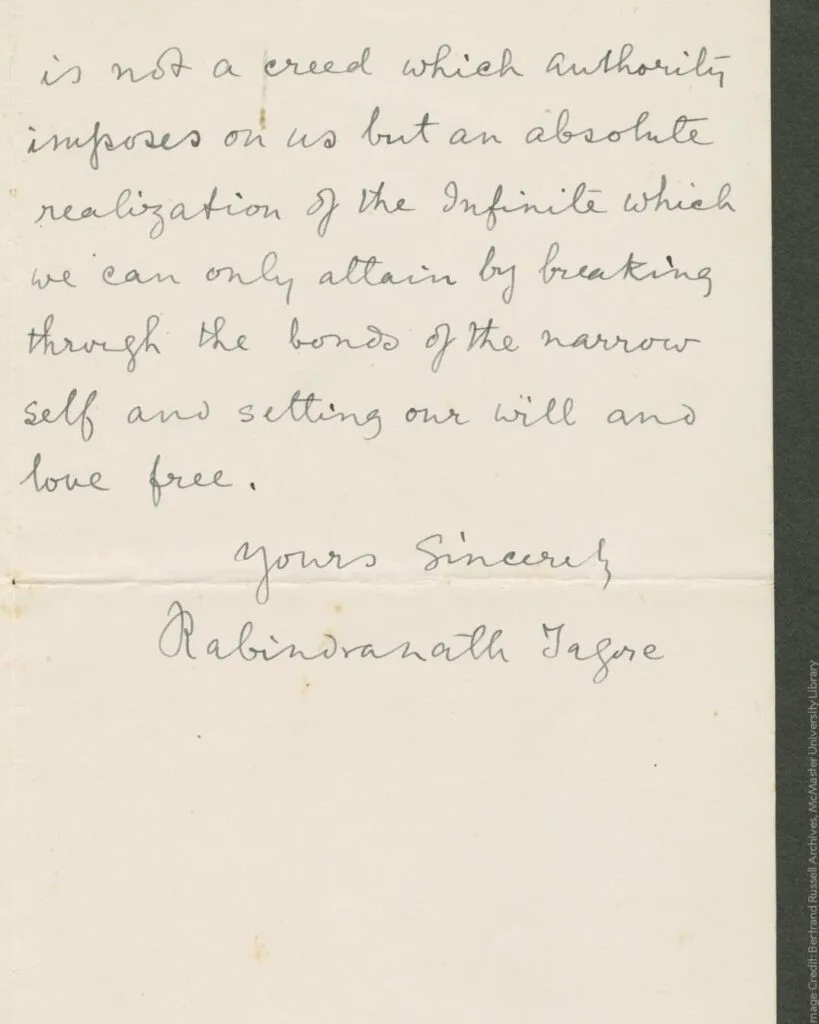 is not a creed which authority
imposes on us but an absolute
realization of the Infinite which
we can only attain by breaking
through the bonds of the narrow
self and setting our will and
love free.
Yours Sincerely
Rabindranath Tagore
mage Credit: Bertrand Russell Archives, McMaster University Library